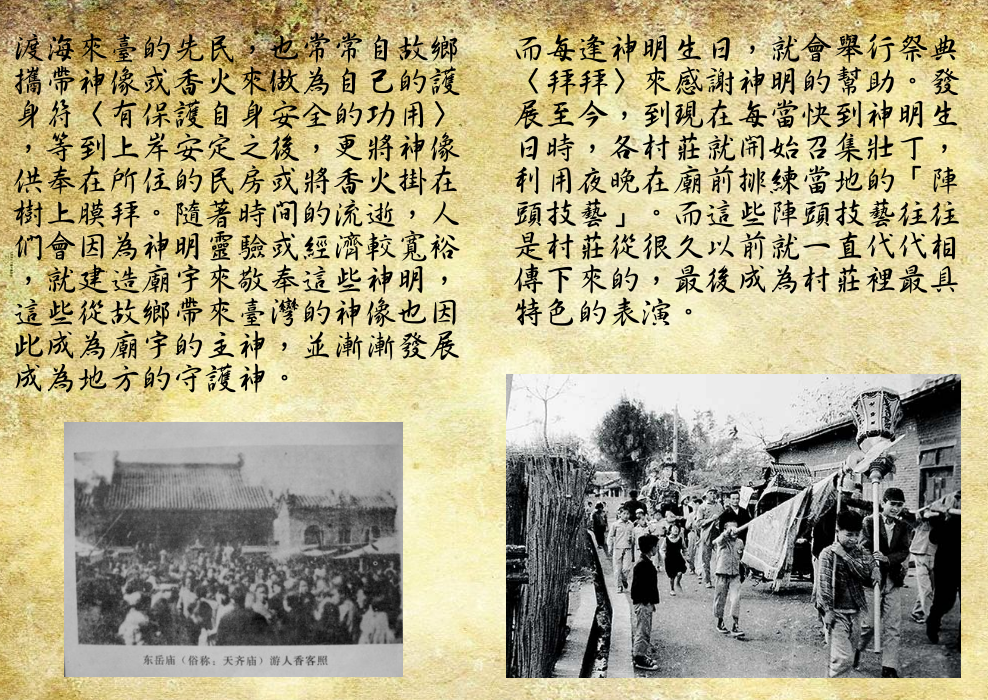 渡海來臺的先民，也常常自故鄉
攜帶神像或香火來做為自己的護
身符〈有保護自身安全的功用〉
，等到上岸安定之後，更將神像
供奉在所住的民房或將香火掛在
樹上膜拜。隨著時間的流逝，人
們會因為神明靈驗或經濟較寬裕
，就建造廟宇來敬奉這些神明，
這些從故鄉帶來臺灣的神像也因
此成為廟宇的主神，並漸漸發展
成為地方的守護神。
东岳庙（俗称：天齐庙）游人香客照
而每逢神明生日，就會舉行祭典
〈拜拜〉來感謝神明的幫助。發
展至今，到現在每當快到神明生
日時，各村莊就開始召集壯丁，
利用夜晚在廟前排練當地的「陣
頭技藝」。而這些陣頭技藝往往
是村莊從很久以前就一直代代相
傳下來的，最後成為村莊裡最具
特色的表演。